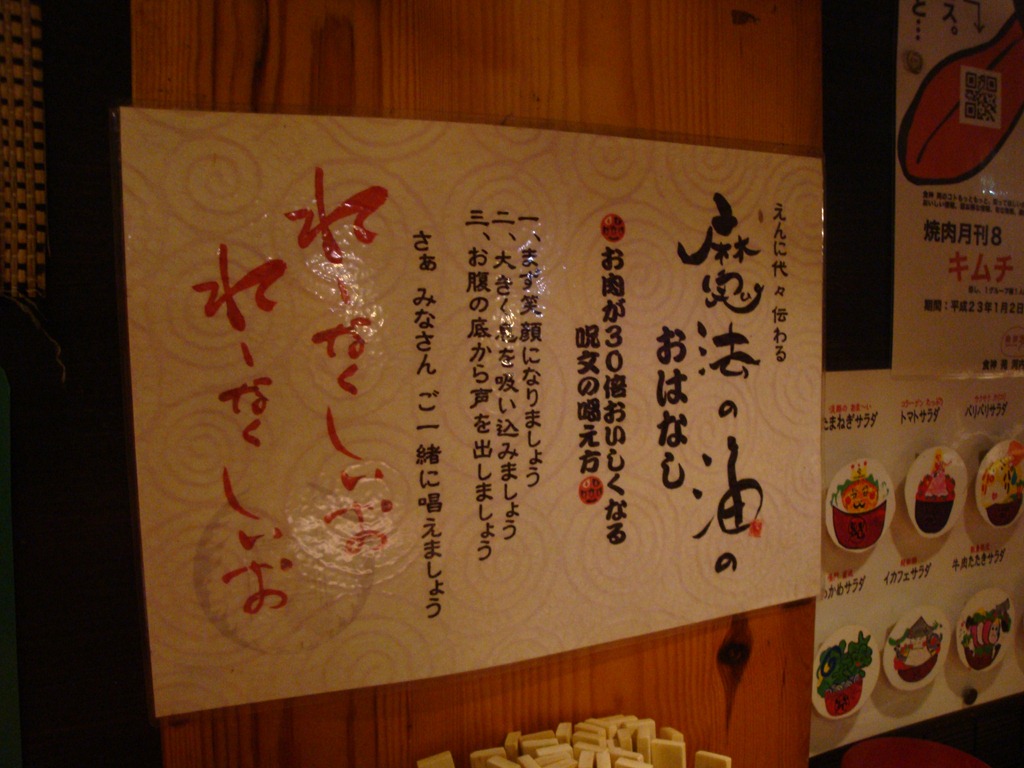 えんに代々伝わる
魔法の油の
おはなし
お肉が30倍おいしくなる
呪文の唱え方
一、まず笑顔になりましょう
二、大きく息を吸い込みましょう
三、お腹の底から声を出しましょう
さぁ みなさん ご一緒に唱えましょう
れーなくしいお
れーなくしいお
ス。
と…
焼肉月刊8
キムチ
期間：平成23年1月2日
たまねぎサラダ
トマトサラダ
パリパリサラダ
わかめサラダ
イカフェサラダ
牛肉たたきサラダ